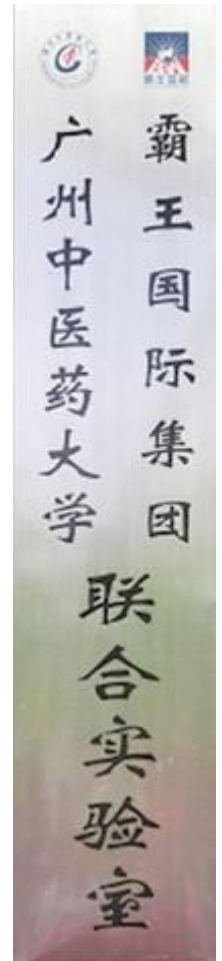 霸王国际集团
广州中医药大学
联合实验室